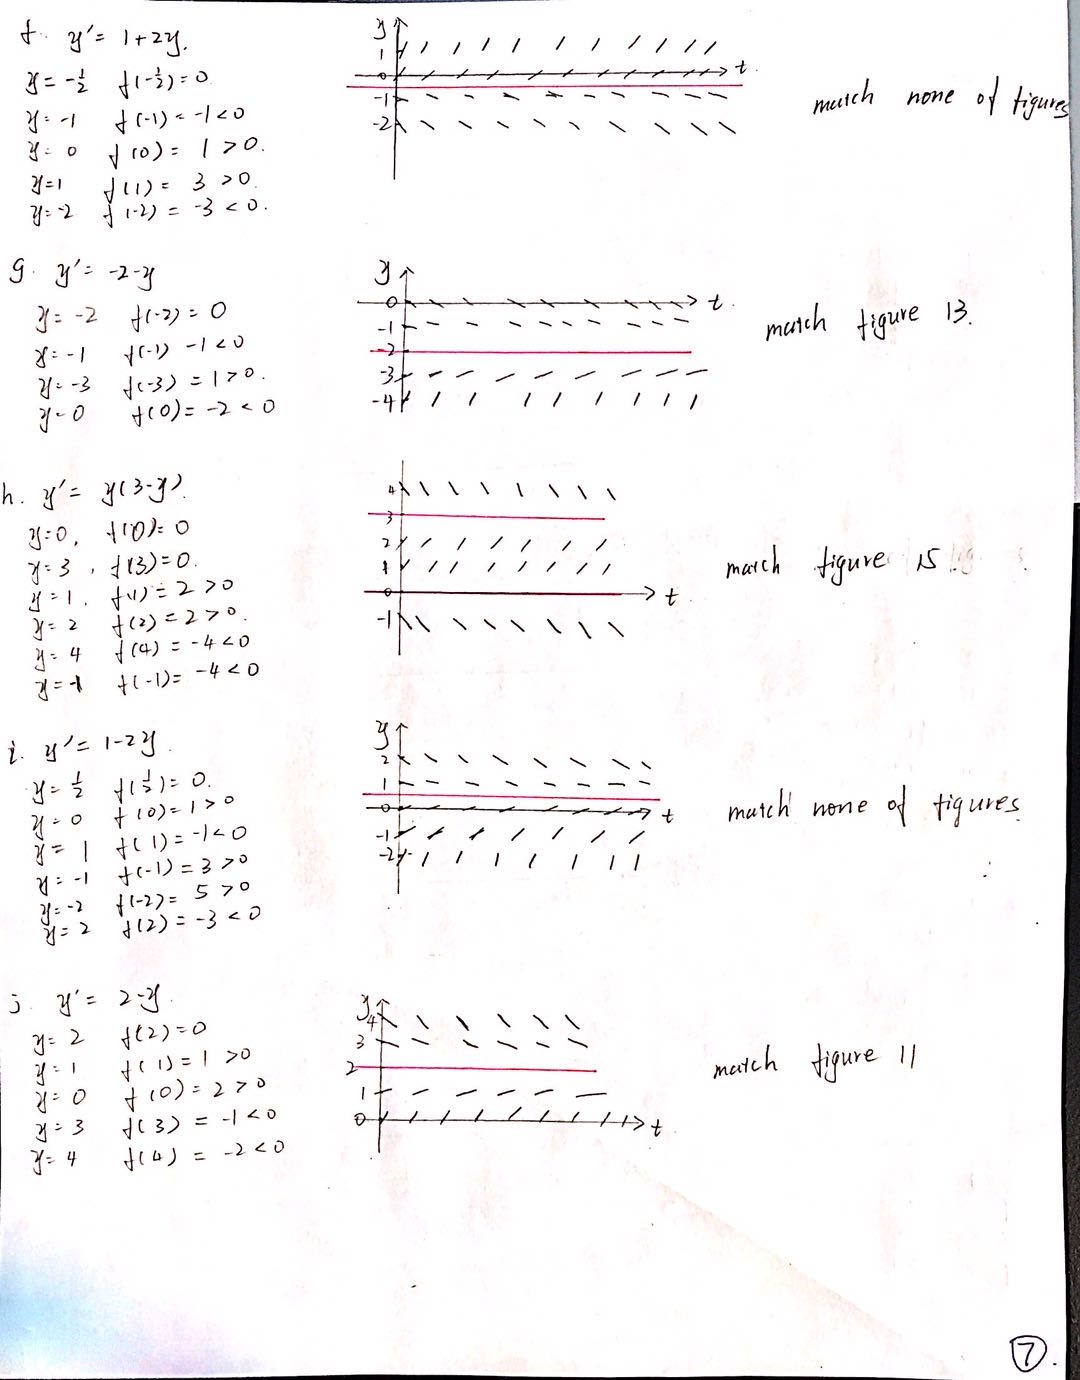 f. y' = 1+2y.
y = -1/2 f(-1/2) = 0.
y = -1 f(-1) = -1 < 0
y = 0 f(0) = 1 > 0.
y = 1 f(1) = 3 > 0.
y = -2 f(-2) = -3 < 0.
y
1
0
-1
-2
t.
match none of figures
g. y' = -2-y
y = -2 f(-2) = 0
y = -1 f(-1) -1 < 0
y = -3 f(-3) = 1 > 0.
y = 0 f(0) = -2 < 0
y
0
-1
-2
-3
-4
t.
match figure 13.
h. y' = y(3-y)
y = 0, f(0) = 0
y = 3, f(3) = 0.
y = 1, f(1) = 2 > 0
y = 2 f(2) = 2 > 0.
y = 4 f(4) = -4 < 0
y = -1 f(-1) = -4 < 0
4
3
2
1
0
-1
t.
match figure 15
i. y' = 1-2y.
y = 1/2 f(1/2) = 0.
y = 0 f(0) = 1 > 0
y = 1 f(1) = -1 < 0
y = -1 f(-1) = 3 > 0
y = -2 f(-2) = 5 > 0
y = 2 f(2) = -3 < 0
y
2
1
0
-1
-2
t
match none of figures.
j. y' = 2-y.
y = 2 f(2) = 0
y = 1 f(1) = 1 > 0
y = 0 f(0) = 2 > 0
y = 3 f(3) = -1 < 0
y = 4 f(4) = -2 < 0
y
4
3
2
1
0
t.
match figure 11
7.